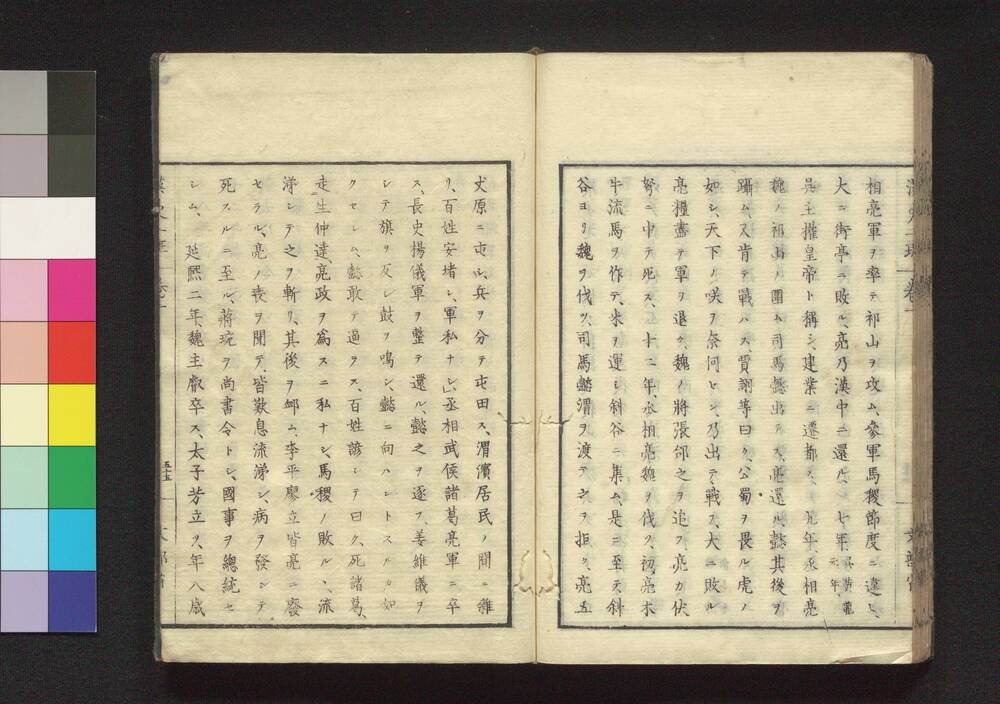 相亮軍ヲ率テ祁山ヲ攻ム、參軍馬稷節度ニ違ヒ、
大ニ街亭ニ敗ル、亮乃漢中ニ還ル、七年、呉黄龍元年、
呉主權皇帝ト稱シ、建業ニ遷都ス、九年、丞相亮
魏ノ祁山ヲ圍ム司馬懿出テス、亮還ル、懿其後ヲ
躡ム、又肯テ戰ハス、賈詡等曰ク、公蜀ヲ畏ル虎ノ
如シ、天下ノ咲ヲ奈何ヒシ、乃出テ戰フ、大ニ敗ル
亮糧盡テ軍ヲ退ク、魏ノ將張郃之ヲ追フ、亮カ伏
弩ニ中テ死ス、十二年、丞相亮魏ヲ伐ツ、初亮木
牛流馬ヲ作テ、米ヲ運シ斜谷ニ集ム、是ニ至テ斜
谷ヨリ魏ヲ伐ツ、司馬懿渭ヲ渡テ之ヲ拒ク、亮五
丈原ニ屯シ、兵ヲ分テ屯田ス、渭濱居民ノ間ニ雜
リ、百姓安堵シ、軍私ナシ、丞相武侯諸葛亮軍ニ卒
ス、長史揚儀軍ヲ整テ還ル、懿之ヲ逐フ、姜維儀ヲ
シテ旗ヲ反シ鼓ヲ鳴シ、懿ニ向ハントスルカ如
クセシム、懿敢テ過ラス、百姓諺シテ曰ク、死諸葛、
走生仲達、亮政ヲ爲スニ私ナシ、馬稷ノ敗ル、流
涕シテ之ヲ斬リ、其後ヲ邺ム、李平廖立皆亮ニ廢
セラル、亮ノ喪ヲ聞テ、皆歎息流涕シ、病ヲ發シテ
死スルニ至ル、蔣琬ヲ尚書令トシ、國事ヲ總統セ
シム、延熙二年、魏主叡卒ス、太子芳立ツ、年八歳
五十五